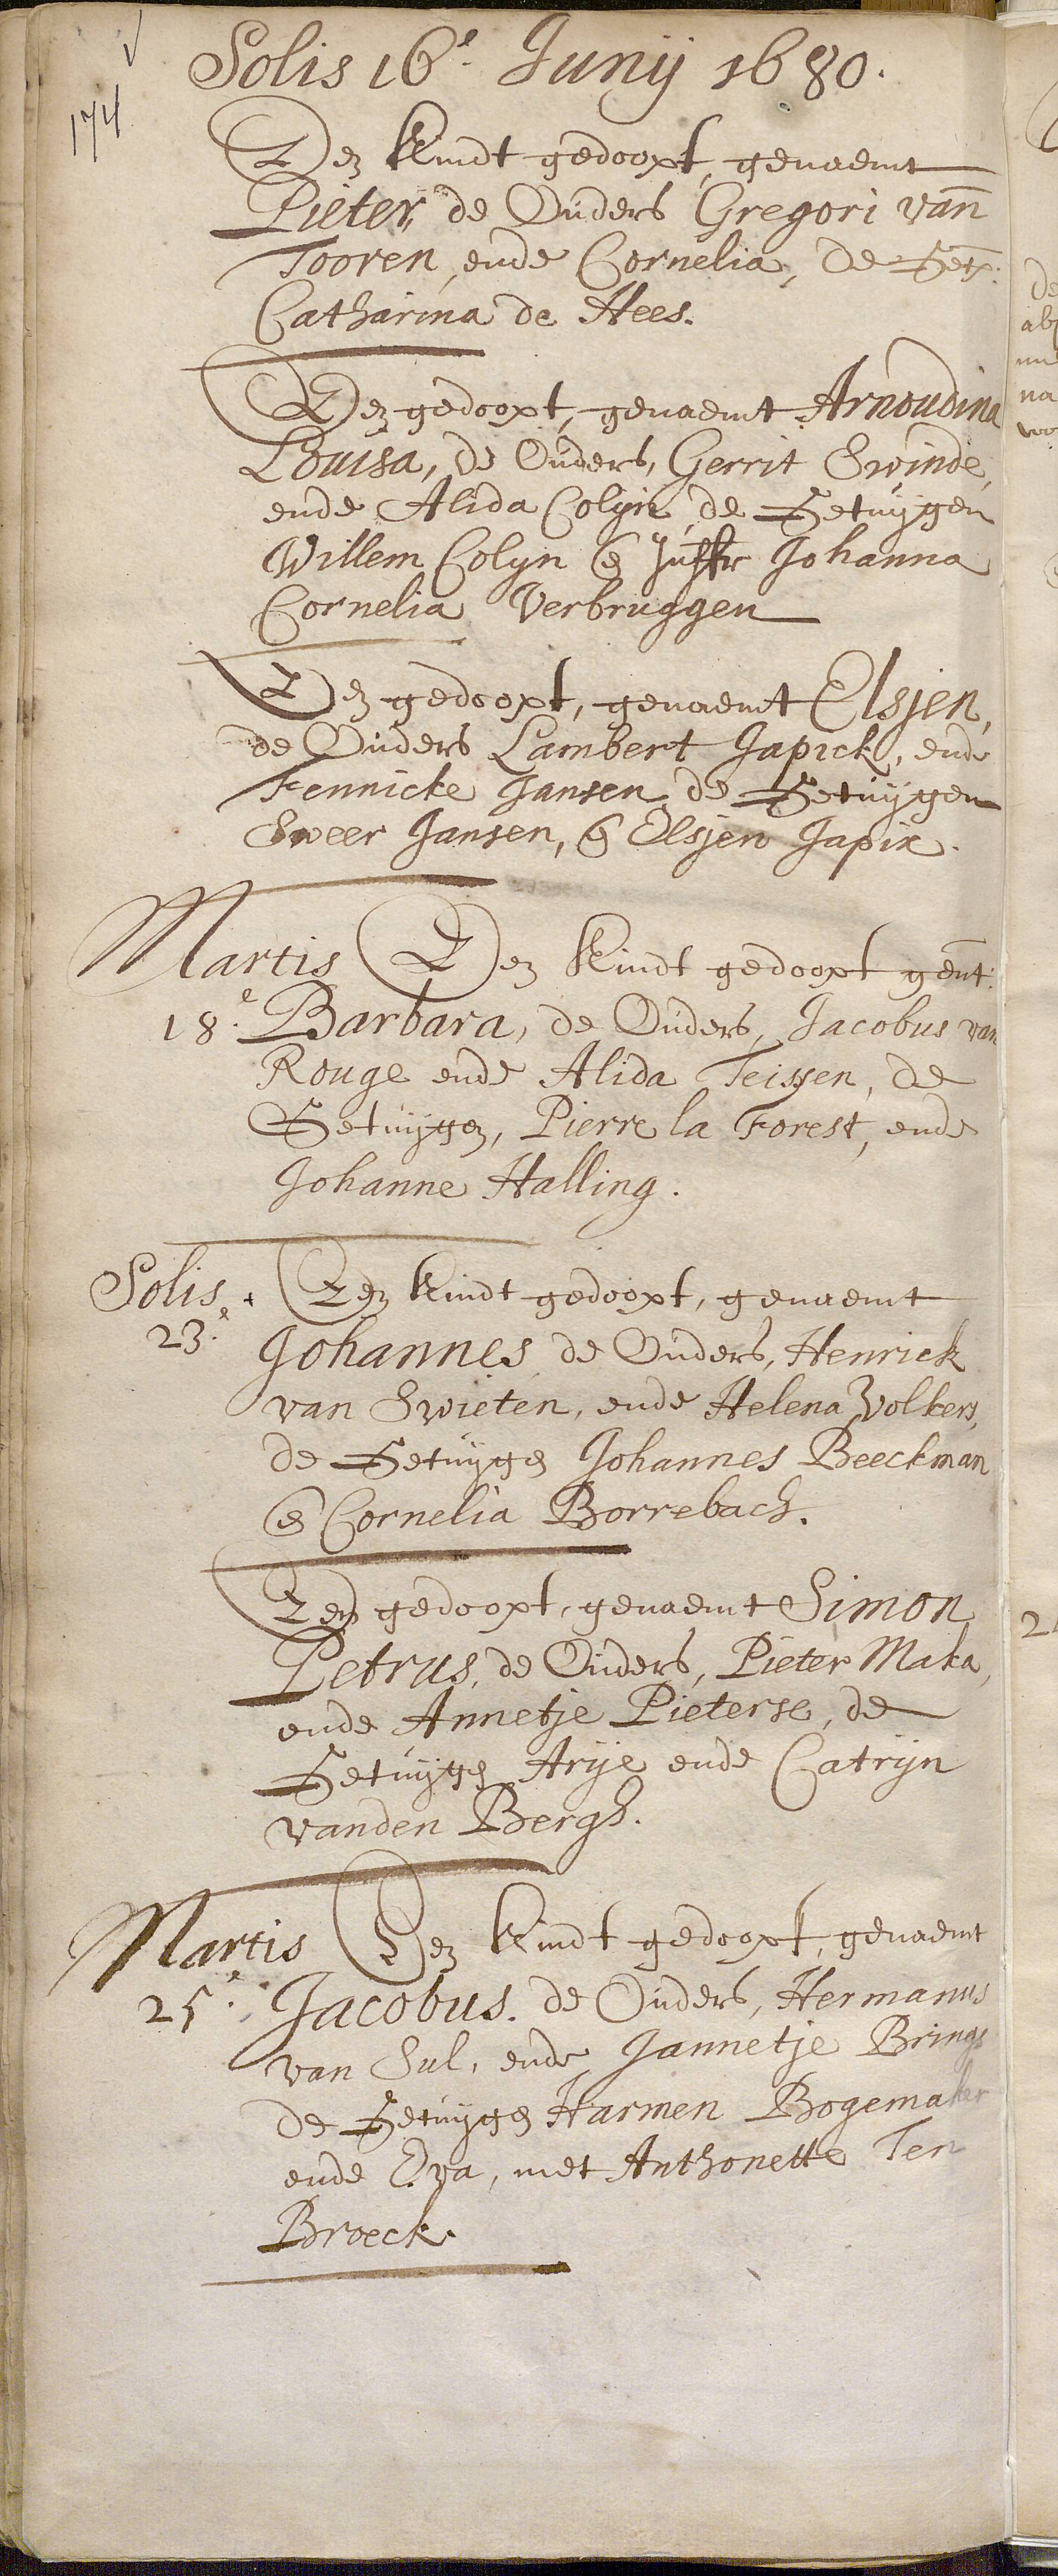 174
Solis 16e. Junij 1680.
Een Kindt gedoopt, genaemt
Pieter, de Ouders Gregori van
Tooren, ende Cornelia, de Get:
Catharina de Hees.
Een gedoopt, genaemt Arnoudina
Louisa, de Ouders, Gerrit Swinde,
ende Alida Colyn, de Getuijgen
Willem Colyn en Juffr Johanna
Cornelia Verbruggen
Een gedoopt, genaemt Elsjen,
de Ouders Lambert Japick, ende
Fennicke Jansen, de Getuijgen
Sweer Jansen, en Elsjen Japix.
Martis Een Kindt gedoopt gent:
18e. Barbara, de Ouders, Jacobus van
Rouge ende Alida Teissen, de
Getuijgen, Pierre la Forest, ende
Johanne Halling.
Solis Een Kindt gedoopt, genaemt
23e. Johannes, de Ouders, Henrick
van Swieten, ende Helena Volkers,
de Getuijgen Johannes Beeckman
en Cornelia Borrebach.
Een gedoopt, genaemt Simon
Petrus, de Ouders, Pieter Maka,
ende Annetje Pieterse, de
Getuijgen Arije ende Catrijn
vanden Bergh.
Martis Een Kindt gedoopt, genaemt
25e. Jacobus. de Ouders, Hermanus
van Sul, ende Jannetje Brings
de Getuijgen Harmen Bogemaker
ende Eva, met Anthonette Ten
Broeck.